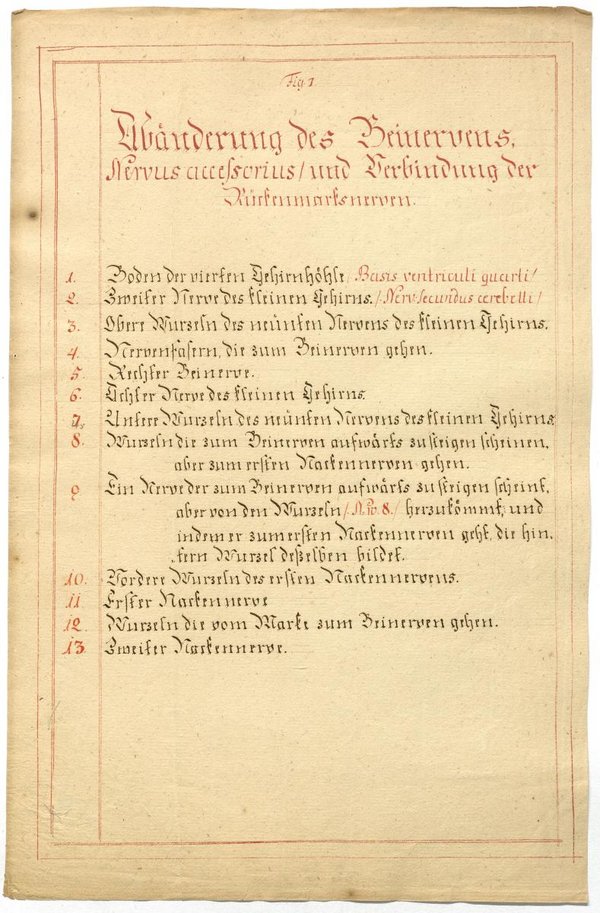 Fig. 1.
Abänderung des Beinervens,
Nervus accessorius/ und Verbindung der
Rückenmarksnerven.
1. Boden der vierten Gehirnhöhle /Basis ventriculi quarti/
2. Zweiter Nerve des kleinen Gehirns. /Nerv. secundus cerebelli/
3. Obere Wurzeln des neünten Nervens des kleinen Gehirns.
4. Nervenfasern, die zum Beinerven gehen.
5. Rechter Beinerve.
6. Achter Nerve des kleinen Gehirns.
7. Untere Wurzeln des neünten Nervens des kleinen Gehirns
8. Wurzeln die zum Beinerven aufwärts zu steigen scheinen,
aber zum ersten Nackennerven gehen.
9 Ein Nerve der zum Beinerven aufwärts zu steigen scheint,
aber von den Wurzeln /N.ro 8./ herzukömmt, und
indem er zum ersten Nackennerven geht, die hin,
tern Wurzel deßelben bildet.
10. Vordere Wurzeln des ersten Nackennervens.
11. Erster Nackennerve
12. Wurzeln die vom Marke zum Beinerven gehen.
13. Zweiter Nackennerve.